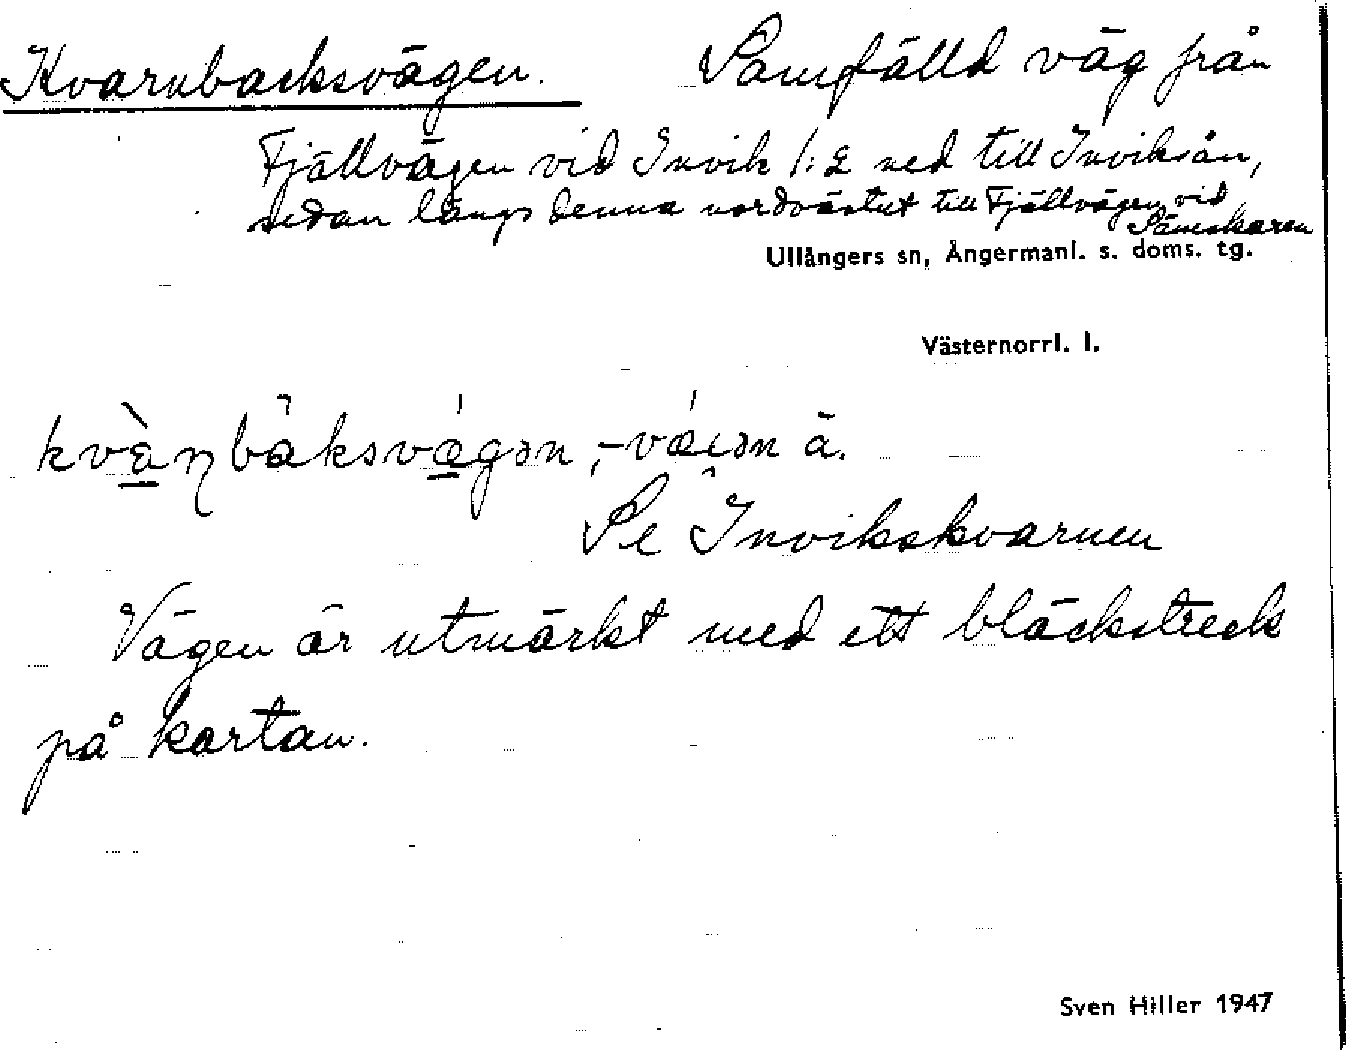 Kvarnbacksvägen. Samfälld väg från
Fjällvägen vid Invik 1:2 ned till Inviksån,
sedan längs denna nordvästut till Fjällvägen vid
Ullångers sn, Ångermanl. s. doms. tg.
Västernorrl. l.
kvàɳbàksvǽgən, -vǽiən ä.
Se Invikskvarnen
Vägen är utmärkt med ett bläckstreck
på kartan.
Sven Hiller 1947